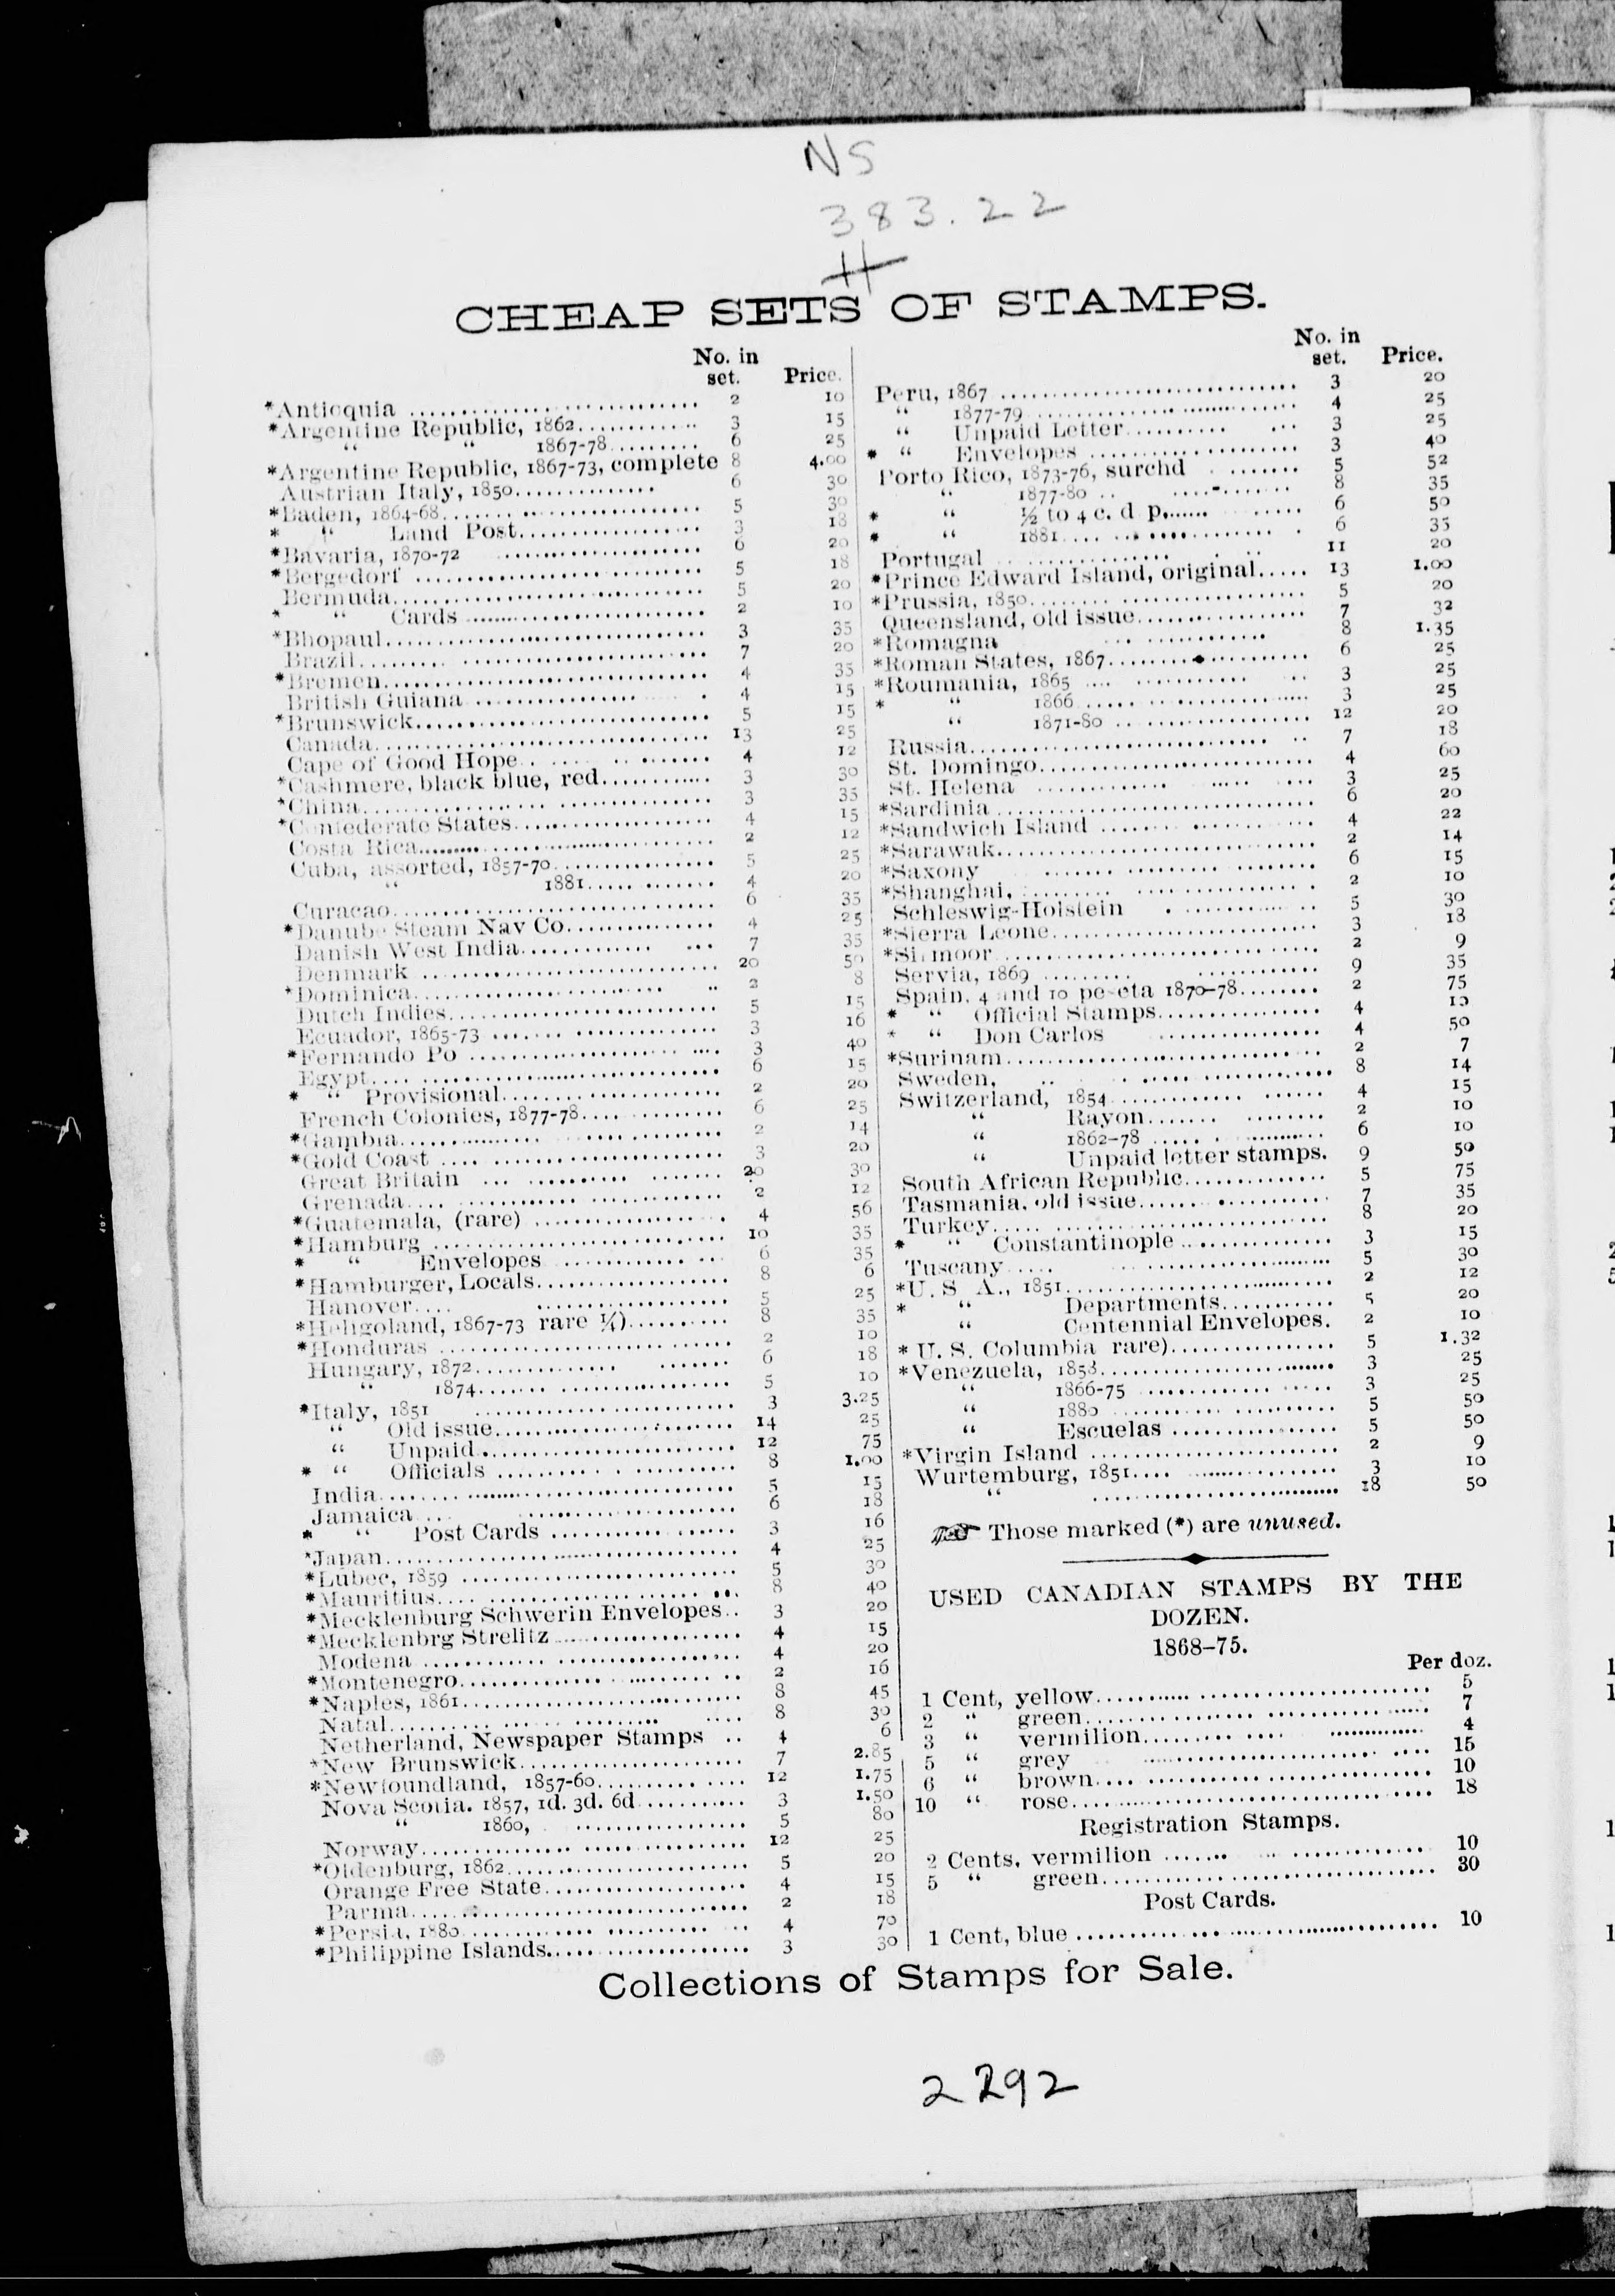 NS
383.22
H
CHEAP SETS OF STAMPS.
No. in set. Price.
*Antioquia 2 10
*Argentine Republic, 1862 3 15
“ “ 1867-78 6 25
*Argentine Republic, 1867-73, complete 8 4.00
Austrian Italy, 1850 6 30
*Baden, 1864-68 5 30
* “ Land Post 3 18
*Bavaria, 1870-72 6 20
*Bergedorf 5 18
Bermuda 5 20
* “ Cards 2 10
*Bhopaul 3 35
Brazil 7 20
*Bremen 4 35
British Guiana 4 15
*Brunswick 5 15
Canada 13 25
Cape of Good Hope 4 12
*Cashmere, black blue, red 3 30
*China 3 35
*Confederate States 4 15
Costa Rica 2 12
Cuba, assorted, 1857-70 5 25
“ 1881 4 20
Curacao 6 35
*Danube Steam Nav Co 4 25
Danish West India 7 35
Denmark 20 50
*Dominica 2 8
Dutch Indies 5 15
Ecuador, 1865-73 3 16
*Fernando Po 3 40
Egypt 6 15
* “ Provisional 2 20
French Colonies, 1877-78 6 25
*Gambia 2 14
*Gold Coast 3 20
Great Britain 20 30
Grenada 2 12
*Guatemala, (rare) 4 56
*Hamburg 10 35
* “ Envelopes 6 35
*Hamburger, Locals 8 6
Hanover 5 25
*Heligoland, 1867-73 rare ¼) 8 35
*Honduras 2 10
Hungary, 1872 6 18
“ 1874 5 10
*Italy, 1851 3 3.25
“ Old issue 14 25
“ Unpaid 12 75
* “ Officials 8 1.00
India 5 15
Jamaica 6 18
* “ Post Cards 3 16
*Japan 4 25
*Lubec, 1859 5 30
*Mauritius 8 40
*Mecklenburg Schwerin Envelopes 3 20
*Mecklenbrg Strelitz 4 15
Modena 4 20
*Montenegro 2 16
*Naples, 1861 8 45
Natal 8 30
Netherland, Newspaper Stamps 4 6
*New Brunswick 7 2.85
*Newfoundland, 1857-60 12 1.75
Nova Scotia. 1857, 1d. 3d. 6d 3 1.50
“ 1860, 5 80
Norway 12 25
*Oldenburg, 1862 5 20
Orange Free State 4 15
Parma 2 18
*Persia, 1880 4 70
*Philippine Islands 3 30
No. in set. Price.
Peru, 1867 3 20
“ 1877-79 4 25
“ Unpaid Letter 3 25
* “ Envelopes 3 40
Porto Rico, 1873-76, surchd 5 52
“ 1877-80 8 35
* “ ½ to 4 c. d p. 6 50
* “ 1881 6 35
Portugal 11 20
*Prince Edward Island, original 13 1.00
*Prussia, 1850 5 20
Queensland, old issue 7 32
*Romagna 8 1.35
*Roman States, 1867 6 25
*Roumania, 1865 3 25
* “ 1866 3 25
“ 1871-80 12 20
Russia 7 18
St. Domingo 4 60
St. Helena 3 25
*Sardinia 6 20
*Sandwich Island 4 22
*Sarawak 2 14
*Saxony 6 15
*Shanghai, 2 10
Schleswig-Holstein 5 30
*Sierra Leone 3 18
*Sirmoor 2 9
Servia, 1869 9 35
Spain, 4 and 10 peseta 1870-78 2 75
* “ Official Stamps 4 10
* “ Don Carlos 4 50
*Surinam 2 7
Sweden, 8 14
Switzerland, 1854 4 15
“ Rayon 2 10
“ 1862-78 6 10
“ Unpaid letter stamps. 9 50
South African Republic 5 75
Tasmania, old issue 7 35
Turkey 8 20
* “ Constantinople 3 15
Tuscany 5 30
*U. S A., 1851 2 12
* “ Departments 5 20
“ Centennial Envelopes. 2 10
* U. S. Columbia rare) 5 1.32
*Venezuela, 1858 3 25
“ 1866-75 3 25
“ 1880 5 50
“ Escuelas 5 50
*Virgin Island 2 9
Wurtemburg, 1851 3 10
“ 18 50
Those marked (*) are unused.
USED CANADIAN STAMPS BY THE
DOZEN.
1868-75.
Per doz.
1 Cent, yellow 5
2 “ green 7
3 “ vermilion 4
5 “ grey 15
6 “ brown 10
10 “ rose 18
Registration Stamps.
2 Cents, vermilion 10
5 “ green 30
Post Cards.
1 Cent, blue 10
Collections of Stamps for Sale.
2292